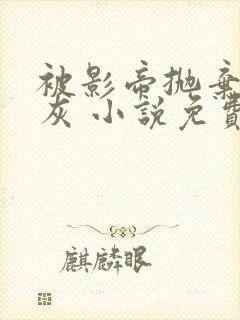 被影帝抛棄
灰 小說免費
麒麟眼